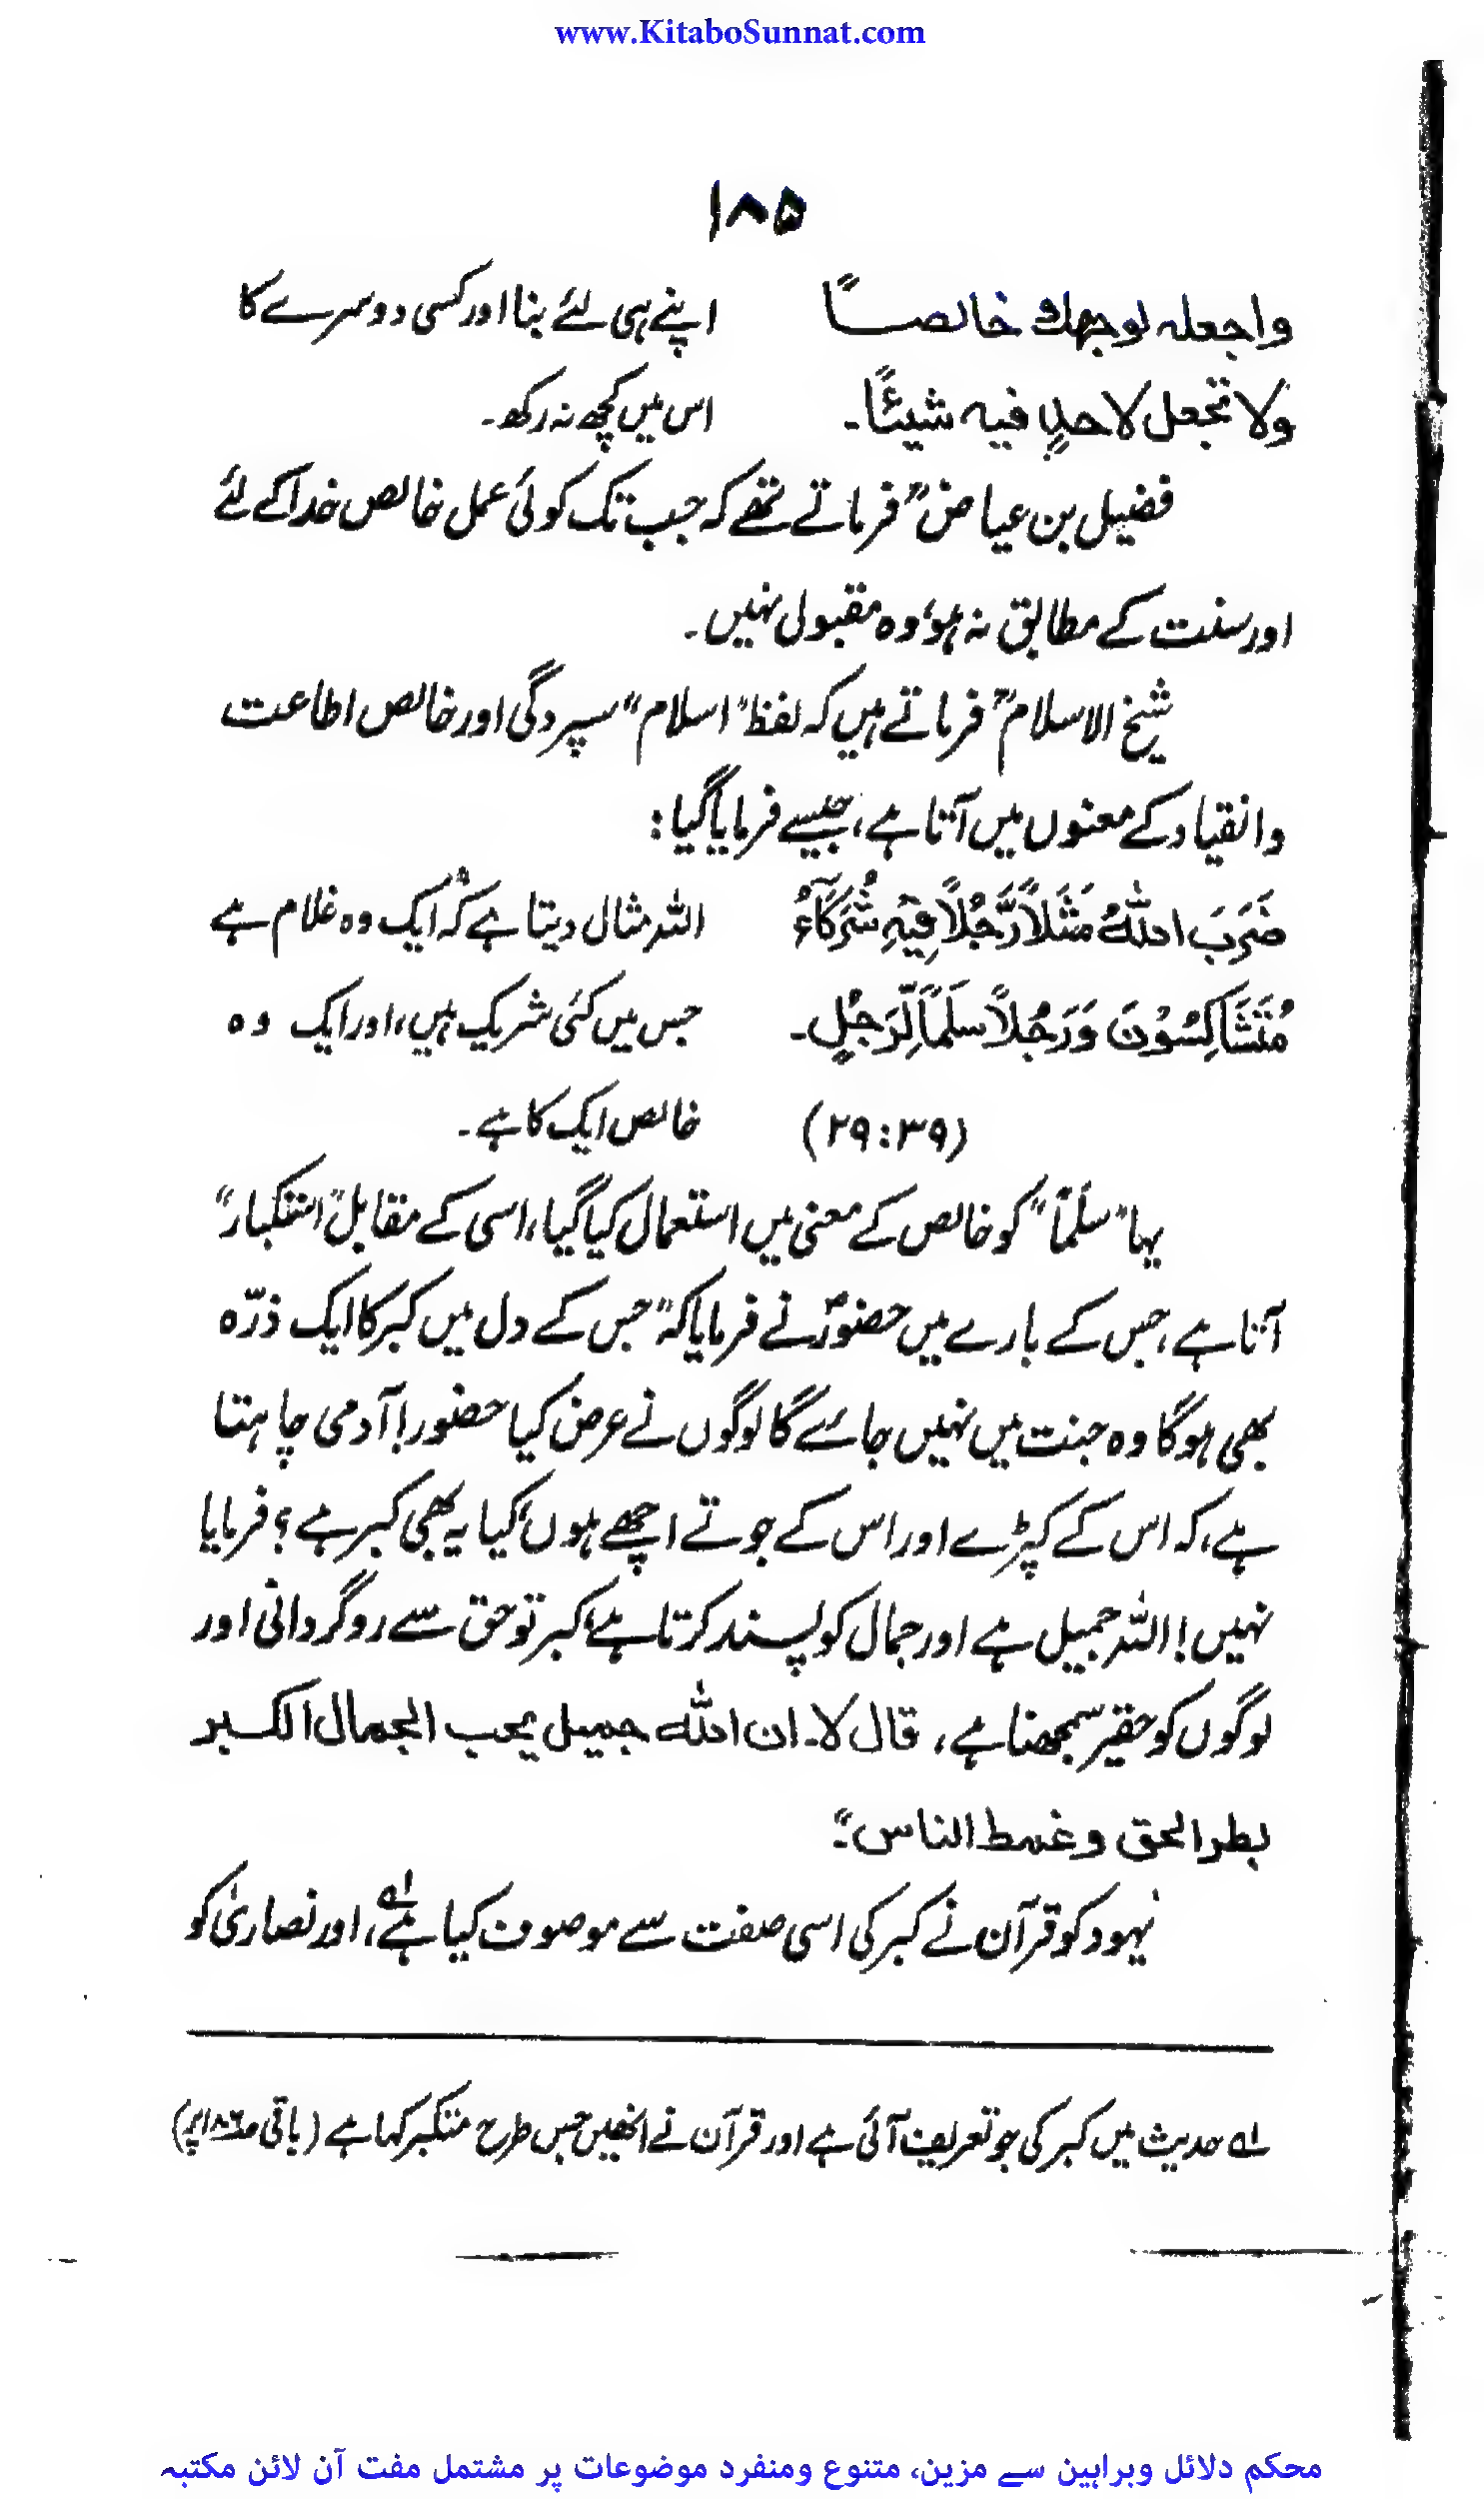 www.KitaboSunnat.com
۱۸۵
واجعله لوجهك خالصاً اپنے ہی لئے بنا اور کسی دوسرے کا
ولا تجعل لاحدٍ فيه شيئاً۔ اس میں کچھ نہ رکھ۔
فضیل بن عیاضؒ فرماتے تھے کہ جب تک کوئی عمل خالص خدا کے لئے
اور سنت کے مطابق نہ ہو، وہ مقبول نہیں۔
شیخ الاسلامؒ فرماتے ہیں کہ لفظ "اسلام" سپردگی اور خالص اطاعت
وانقیاد کے معنوں میں آتا ہے، جیسے فرمایا گیا:
ضَرَبَ اللّٰهُ مَثَلاً رَّجُلاً فِيْهِ شُرَكَآءُ اللہ مثال دیتا ہے کہ ایک وہ غلام ہے
مُتَشَاكِسُوْنَ وَرَجُلاً سَلَماً لِّرَجُلٍ۔ جس میں کئی شریک ہیں، اور ایک وہ
(۲۹:۳۹) خالص ایک کا ہے۔
یہا "سَلَماً" کو خالص کے معنی میں استعمال کیا گیا، اسی کے مقابل "استکبار"
آتا ہے، جس کے بارے میں حضورؐ نے فرمایا کہ "جس کے دل میں کبر کا ایک ذرّہ
بھی ہوگا وہ جنت میں نہیں جائے گا لوگوں نے عرض کیا حضور! آدمی چاہتا
ہے، کہ اس کے کپڑے اور اس کے جوتے اچھے ہوں، کیا یہ بھی کبر ہے؟ فرمایا
نہیں! اللہ جمیل ہے اور جمال کو پسند کرتا ہے، کبر تو حق سے روگردانی اور
لوگوں کو حقیر سمجھنا ہے، قال لا۔ ان الله جميل يحب الجمال الكبر
بطر الحق وغمط الناس"۔
یہود کو قرآن نے کبر کی اسی صفت سے موصوف کیا ہے؎۱، اور نصاریٰ کو
؎۱ حدیث میں کبر کی جو تعریف آئی ہے اور قرآن نے انھیں جس طرح متکبر کہا ہے (باقی ص۱۸۶ پر)
محکم دلائل وبراہین سے مزین، متنوع ومنفرد موضوعات پر مشتمل مفت آن لائن مکتبہ